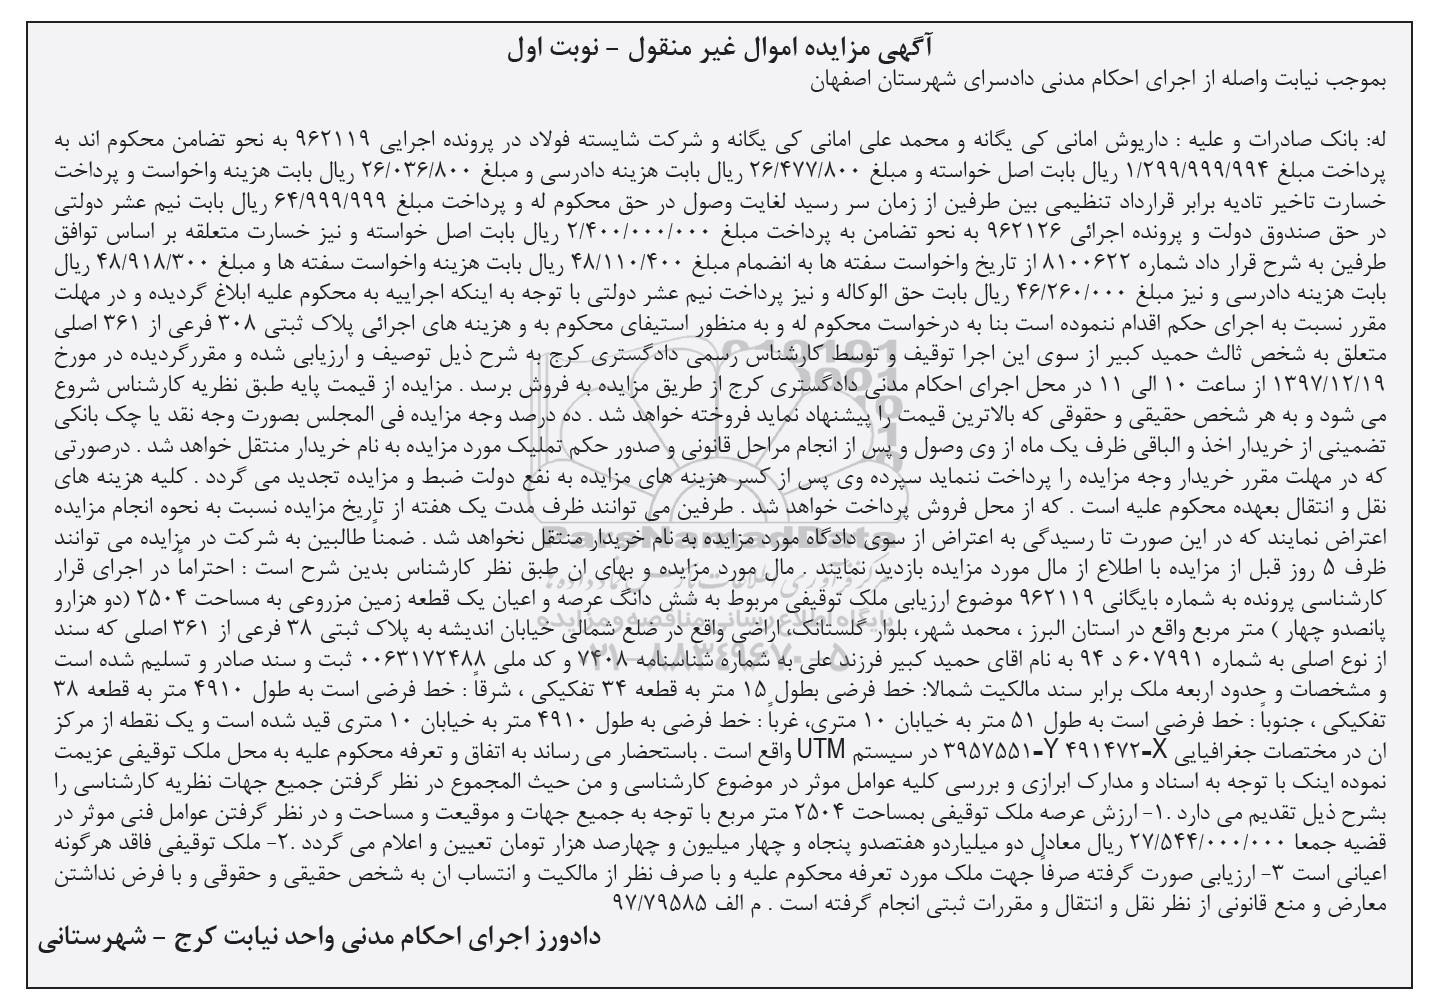 آگهی مزایده اموال غیر منقول - نوبت اول
بموجب نیابت واصله از اجرای احکام مدنی دادسرای شهرستان اصفهان
له: بانک صادرات و علیه : داریوش امانی کی یگانه و محمد علی امانی کی یگانه و شرکت شایسته فولاد در پرونده اجرایی ۹۶۲۱۱۹ به نحو تضامن محکوم اند به
پرداخت مبلغ ۱/۲۹۹/۹۹۹/۹۹۴ ریال بابت اصل خواسته و مبلغ ۲۶/۴۷۷/۸۰۰ ریال بابت هزینه دادرسی و مبلغ ۲۶/۰۳۶/۸۰۰ ریال بابت هزینه واخواست و پرداخت
خسارت تاخیر تادیه برابر قرارداد تنظیمی بین طرفین از زمان سر رسید لغایت وصول در حق محکوم له و پرداخت مبلغ ۶۴/۹۹۹/۹۹۹ ریال بابت نیم عشر دولتی
در حق صندوق دولت و پرونده اجرائی ۹۶۲۱۲۶ به نحو تضامن به پرداخت مبلغ ۲/۴۰۰/۰۰۰/۰۰۰ ریال بابت اصل خواسته و نیز خسارت متعلقه بر اساس توافق
طرفین به شرح قرار داد شماره ۸۱۰۰۶۲۲ از تاریخ واخواست سفته ها به انضمام مبلغ ۴۸/۱۱۰/۴۰۰ ریال بابت هزینه واخواست سفته ها و مبلغ ۴۸/۹۱۸/۳۰۰ ریال
بابت هزینه دادرسی و نیز مبلغ ۴۶/۲۶۰/۰۰۰ ریال بابت حق الوکاله و نیز پرداخت نیم عشر دولتی با توجه به اینکه اجراییه به محکوم علیه ابلاغ گردیده و در مهلت
مقرر نسبت به اجرای حکم اقدام ننموده است بنا به درخواست محکوم له و به منظور استیفای محکوم به و هزینه های اجرائی پلاک ثبتی ۳۰۸ فرعی از ۳۶۱ اصلی
متعلق به شخص ثالث حمید کبیر از سوی این اجرا توقیف و توسط کارشناس رسمی دادگستری کرج به شرح ذیل توصیف و ارزیابی شده و مقررگردیده در مورخ
۱۳۹۷/۱۲/۱۹ از ساعت ۱۰ الی ۱۱ در محل اجرای احکام مدنی دادگستری کرج از طریق مزایده به فروش برسد . مزایده از قیمت پایه طبق نظریه کارشناس شروع
می شود و به هر شخص حقیقی و حقوقی که بالاترین قیمت را پیشنهاد نماید فروخته خواهد شد . ده درصد وجه مزایده فی المجلس بصورت وجه نقد یا چک بانکی
تضمینی از خریدار اخذ و الباقی ظرف یک ماه از وی وصول و پس از انجام مراحل قانونی و صدور حکم تملیک مورد مزایده به نام خریدار منتقل خواهد شد . درصورتی
که در مهلت مقرر خریدار وجه مزایده را پرداخت ننماید سپرده وی پس از کسر هزینه های مزایده به نفع دولت ضبط و مزایده تجدید می گردد . کلیه هزینه های
نقل و انتقال بعهده محکوم علیه است . که از محل فروش پرداخت خواهد شد . طرفین می توانند ظرف مدت یک هفته از تاریخ مزایده نسبت به نحوه انجام مزایده
اعتراض نمایند که در این صورت تا رسیدگی به اعتراض از سوی دادگاه مورد مزایده به نام خریدار منتقل نخواهد شد . ضمناً طالبین به شرکت در مزایده می توانند
ظرف ۵ روز قبل از مزایده با اطلاع از مال مورد مزایده بازدید نمایند . مال مورد مزایده و بهای ان طبق نظر کارشناس بدین شرح است : احتراماً در اجرای قرار
کارشناسی پرونده به شماره بایگانی ۹۶۲۱۱۹ موضوع ارزیابی ملک توقیفی مربوط به شش دانگ عرصه و اعیان یک قطعه زمین مزروعی به مساحت ۲۵۰۴ (دو هزارو
پانصدو چهار ) متر مربع واقع در استان البرز ، محمد شهر، بلوار گلستانک، اراضی واقع در ضلع شمالی خیابان اندیشه به پلاک ثبتی ۳۸ فرعی از ۳۶۱ اصلی که سند
از نوع اصلی به شماره ۶۰۷۹۹۱ د ۹۴ به نام اقای حمید کبیر فرزند علی به شماره شناسنامه ۷۴۰۸ و کد ملی ۰۰۶۳۱۷۲۴۸۸ ثبت و سند صادر و تسلیم شده است
و مشخصات و حدود اربعه ملک برابر سند مالکیت شمالا: خط فرضی بطول ۱۵ متر به قطعه ۳۴ تفکیکی ، شرقاً : خط فرضی است به طول ۴۹۱۰ متر به قطعه ۳۸
تفکیکی ، جنوباً : خط فرضی است به طول ۵۱ متر به خیابان ۱۰ متری، غرباً : خط فرضی به طول ۴۹۱۰ متر به خیابان ۱۰ متری قید شده است و یک نقطه از مرکز
ان در مختصات جغرافیایی X-۴۹۱۴۷۲ Y-۳۹۵۷۵۵۱ در سیستم UTM واقع است . باستحضار می رساند به اتفاق و تعرفه محکوم علیه به محل ملک توقیفی عزیمت
نموده اینک با توجه به اسناد و مدارک ابرازی و بررسی کلیه عوامل موثر در موضوع کارشناسی و من حیث المجموع در نظر گرفتن جمیع جهات نظریه کارشناسی را
بشرح ذیل تقدیم می دارد .۱- ارزش عرصه ملک توقیفی بمساحت ۲۵۰۴ متر مربع با توجه به جمیع جهات و موقیعت و مساحت و در نظر گرفتن عوامل فنی موثر در
قضیه جمعا ۲۷/۵۴۴/۰۰۰/۰۰۰ ریال معادل دو میلیاردو هفتصدو پنجاه و چهار میلیون و چهارصد هزار تومان تعیین و اعلام می گردد .۲- ملک توقیفی فاقد هرگونه
اعیانی است ۳- ارزیابی صورت گرفته صرفاً جهت ملک مورد تعرفه محکوم علیه و با صرف نظر از مالکیت و انتساب ان به شخص حقیقی و حقوقی و با فرض نداشتن
معارض و منع قانونی از نظر نقل و انتقال و مقررات ثبتی انجام گرفته است . م الف ۹۷/۷۹۵۸۵
دادورز اجرای احکام مدنی واحد نیابت کرج - شهرستانی
ParsNamadData
پایگاه اطلاع رسانی مناقصه و مزایده
۰۲۱-۸۸۳۴۹۶۷۰-۵